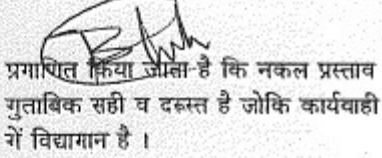 प्रमाणित किया जाता है कि नकल प्रस्ताव
मुताबिक सही व दरूस्त है जोकि कार्यवाही
में विद्यमान है ।